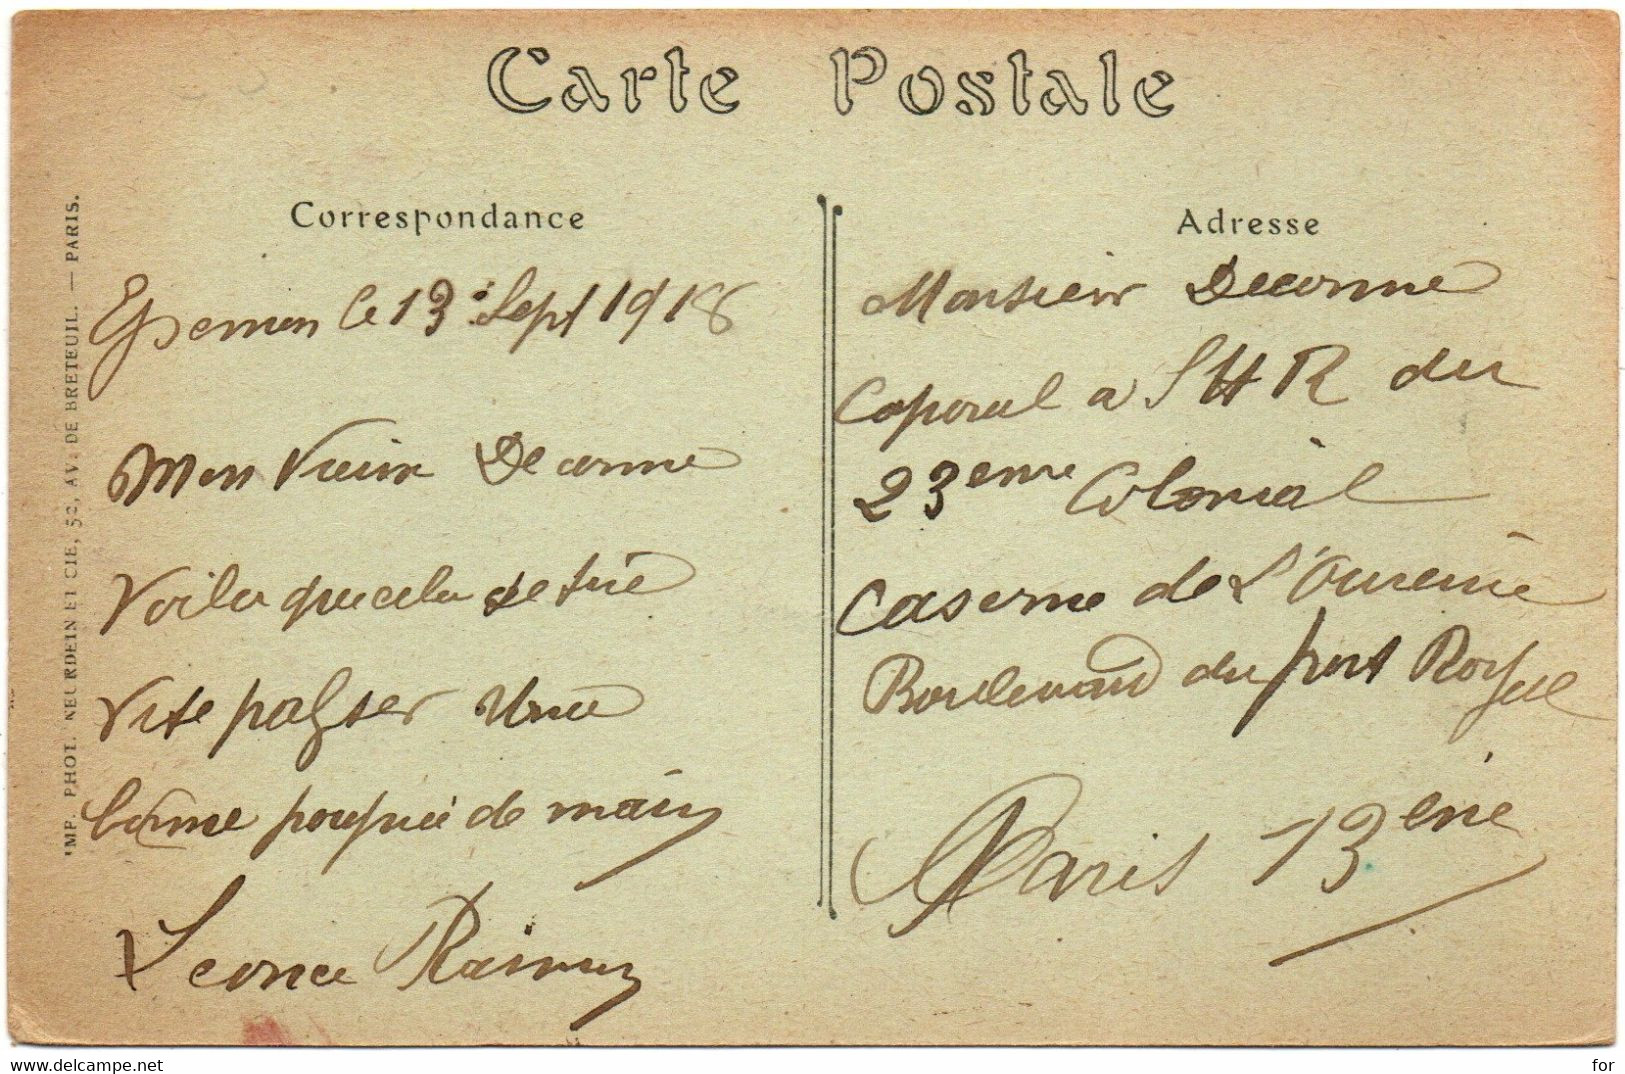 Carte Postale
Correspondance
Epernon le 13 Sept 1918
Mon Vieux Deconne
Voila que cela se tire
Vite passer Une
bonne poignée de main
Leonce
Adresse
Monsieur Deconne
Caporal a S H R du
23eme Colonial
Caserne de L'Ourcine
Boulevard du port Royal
Paris 13ème
IMP. PHOT. NEURDEIN ET CIE, 52, AV. DE BRETEUIL. — PARIS.
www.delcampe.net
for